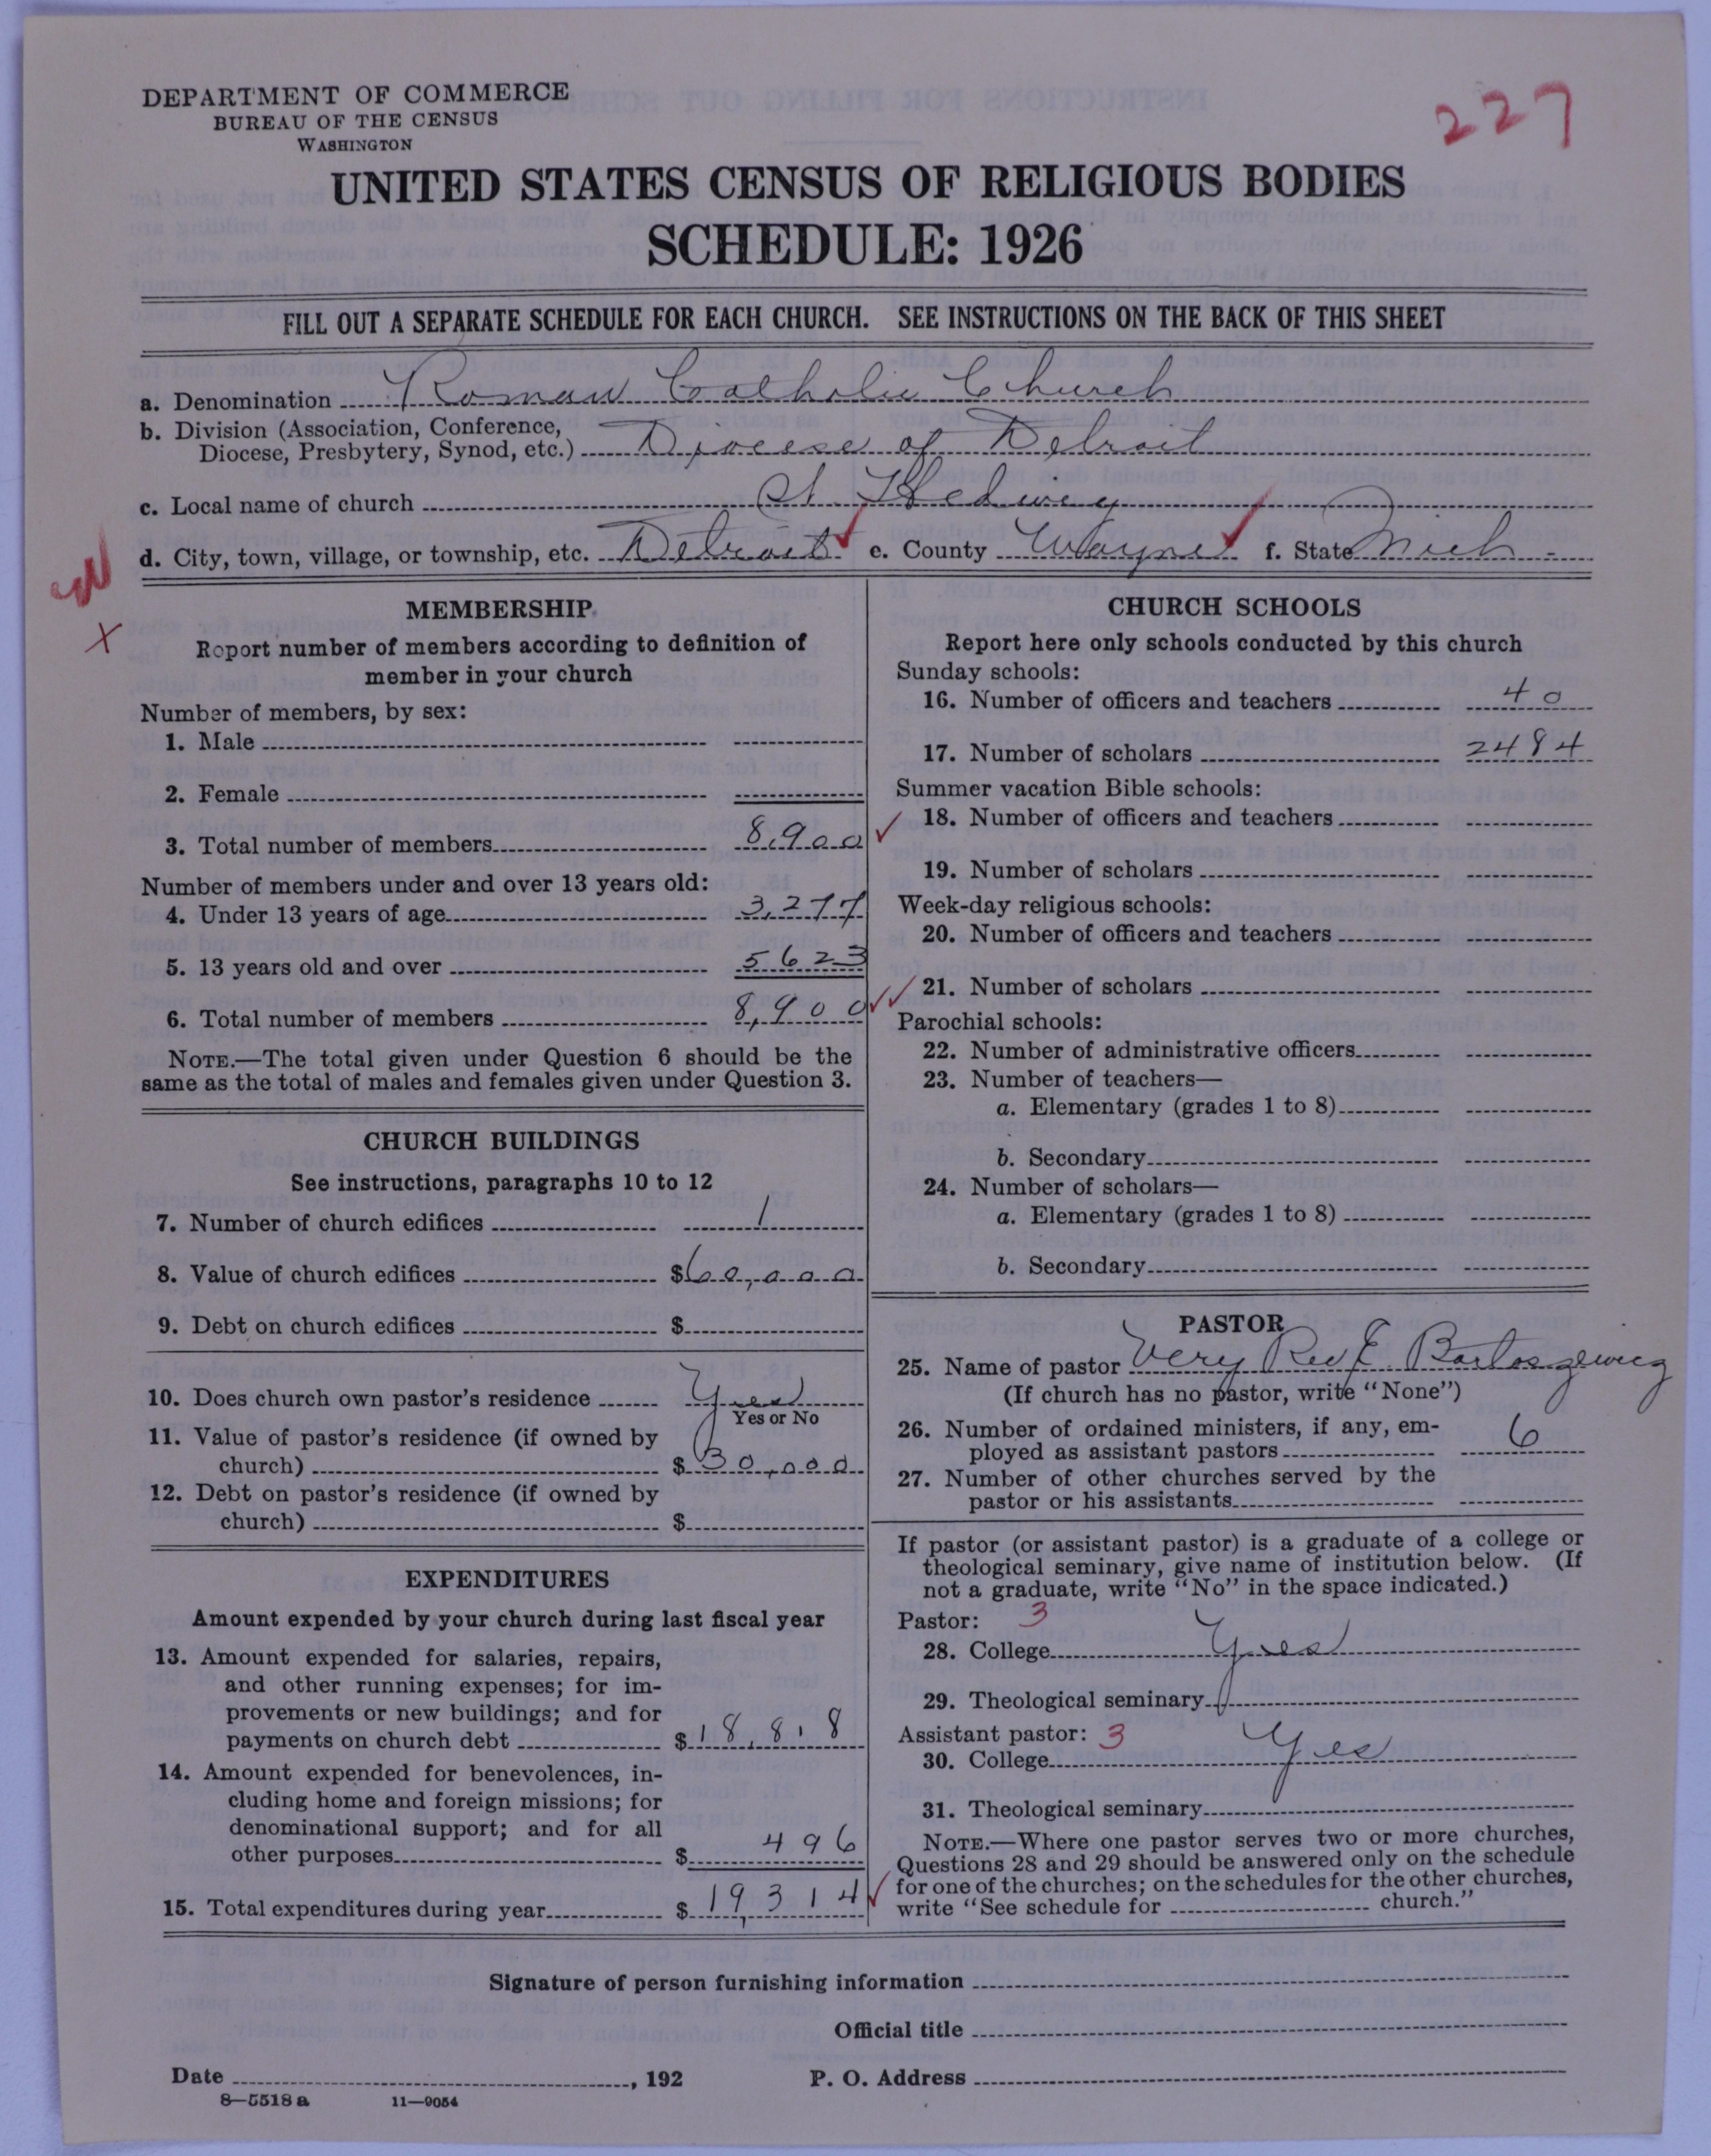 227
DEPARTMENT OF COMMERCE
BUREAU OF THE CENSUS
WASHINGTON
UNITED STATES CENSUS OF RELIGIOUS BODIES
SCHEDULE: 1926
FILL OUT A SEPARATE SCHEDULE FOR EACH CHURCH. SEE INSTRUCTIONS ON THE BACK OF THIS SHEET
a. Denomination Roman Catholic Church
b. Division (Association, Conference,
Diocese, Presbytery, Synod, etc.) Diocese of Detroit
c. Local name of church St. Hedwig
d. City, town, village, or township, etc. Detroit e. County Wayne f. State Mich
MEMBERSHIP
Report number of members according to definition of
member in your church
Number of members, by sex:
1. Male
2. Female
3. Total number of members 8,900
Number of members under and over 13 years old:
4. Under 13 years of age 3,277
5. 13 years old and over 5623
6. Total number of members 8,900
NOTE.—The total given under Question 6 should be the
same as the total of males and females given under Question 3.
CHURCH BUILDINGS
See instructions, paragraphs 10 to 12
7. Number of church edifices 1
8. Value of church edifices $60,000
9. Debt on church edifices $
10. Does church own pastor's residence Yes
Yes or No
11. Value of pastor's residence (if owned by
church) $30,000
12. Debt on pastor's residence (if owned by
church) $
EXPENDITURES
Amount expended by your church during last fiscal year
13. Amount expended for salaries, repairs,
and other running expenses; for im-
provements or new buildings; and for
payments on church debt $18,818
14. Amount expended for benevolences, in-
cluding home and foreign missions; for
denominational support; and for all
other purposes $ 496
15. Total expenditures during year $19,314
CHURCH SCHOOLS
Report here only schools conducted by this church
Sunday schools:
16. Number of officers and teachers 40
17. Number of scholars 2484
Summer vacation Bible schools:
18. Number of officers and teachers
19. Number of scholars
Week-day religious schools:
20. Number of officers and teachers
21. Number of scholars
Parochial schools:
22. Number of administrative officers
23. Number of teachers—
a. Elementary (grades 1 to 8)
b. Secondary
24. Number of scholars—
a. Elementary (grades 1 to 8)
b. Secondary
PASTOR
25. Name of pastor Very Rev E. Bartoszewicz
(If church has no pastor, write "None")
26. Number of ordained ministers, if any, em-
ployed as assistant pastors 6
27. Number of other churches served by the
pastor or his assistants
If pastor (or assistant pastor) is a graduate of a college or
theological seminary, give name of institution below. (If
not a graduate, write "No" in the space indicated.)
Pastor: 3
28. College Yes
29. Theological seminary
Assistant pastor: 3
30. College Yes
31. Theological seminary
NOTE.—Where one pastor serves two or more churches,
Questions 28 and 29 should be answered only on the schedule
for one of the churches; on the schedules for the other churches,
write "See schedule for church."
Signature of person furnishing information
Official title
Date , 192 P. O. Address
8—5518 a 11—9054